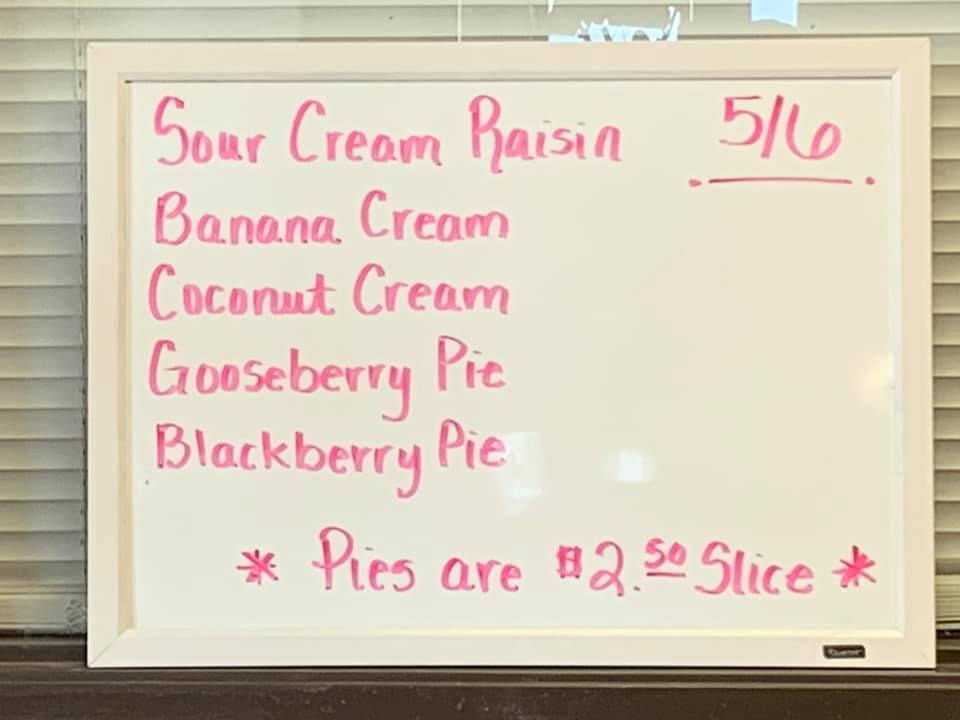 Sour Cream Raisin 5/6
Banana Cream
Coconut Cream
Gooseberry Pie
Blackberry Pie
* Pies are $2.50 Slice *